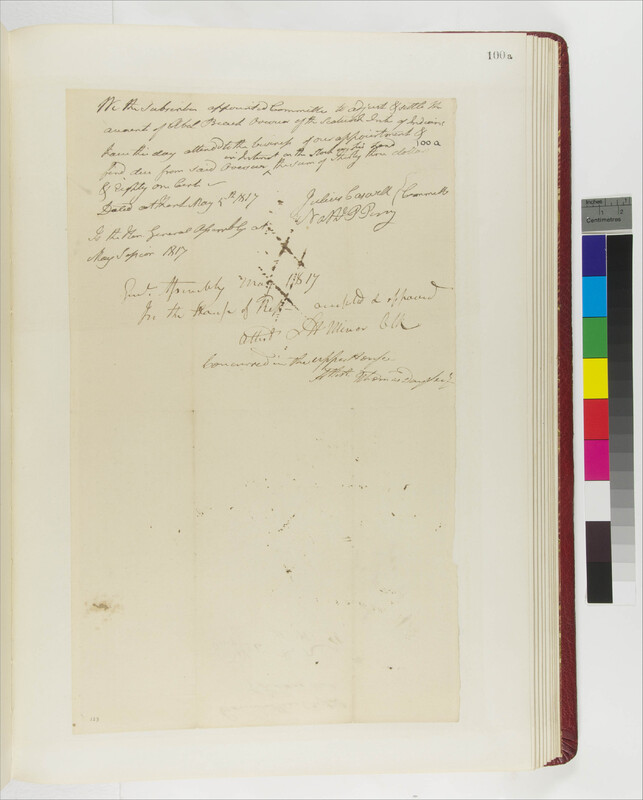 100a
We the Subscribers appointed Committee to adjust & settle the
amount of Abel Beach Overseer of the Tribe of Indians
have this day attended to the business of our appointment &
on Interest on the
100a
find due from said Overseer the sum of thirty three dollars
& Eighty on Cent
Dated at Kent May 5th 1817
Julius Caswell Committee
Nathl P Perry
To the Hon. General Assembly at
May Session 1817
Genl. Assembly May 1817
In the House of Reps accepted & approved
Attest Minor Clk
Concurred in the upper House
Attest Thomas Day Secy
133
Inches
1
2
Centimetres